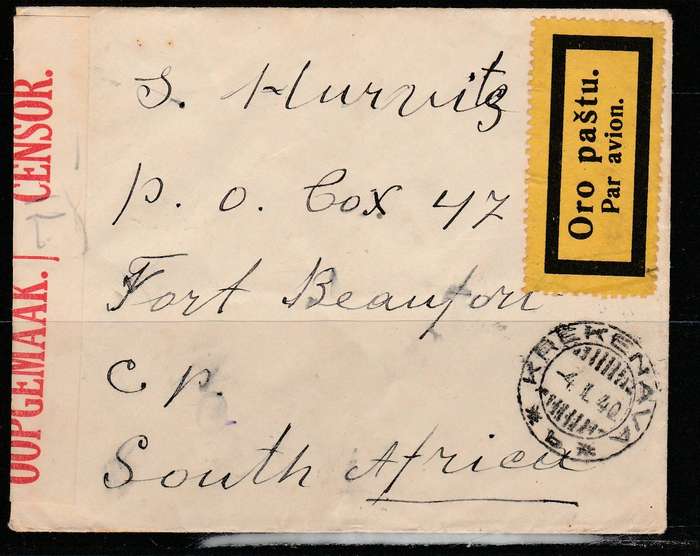 S. Hurvitz
P. O. Box 47
Fort Beaufort
C P.
South Africa
Oro paštu.
Par avion.
KREKENAVA
4. 1. 40
* a *
OOPGEMAAK. | CENSOR.